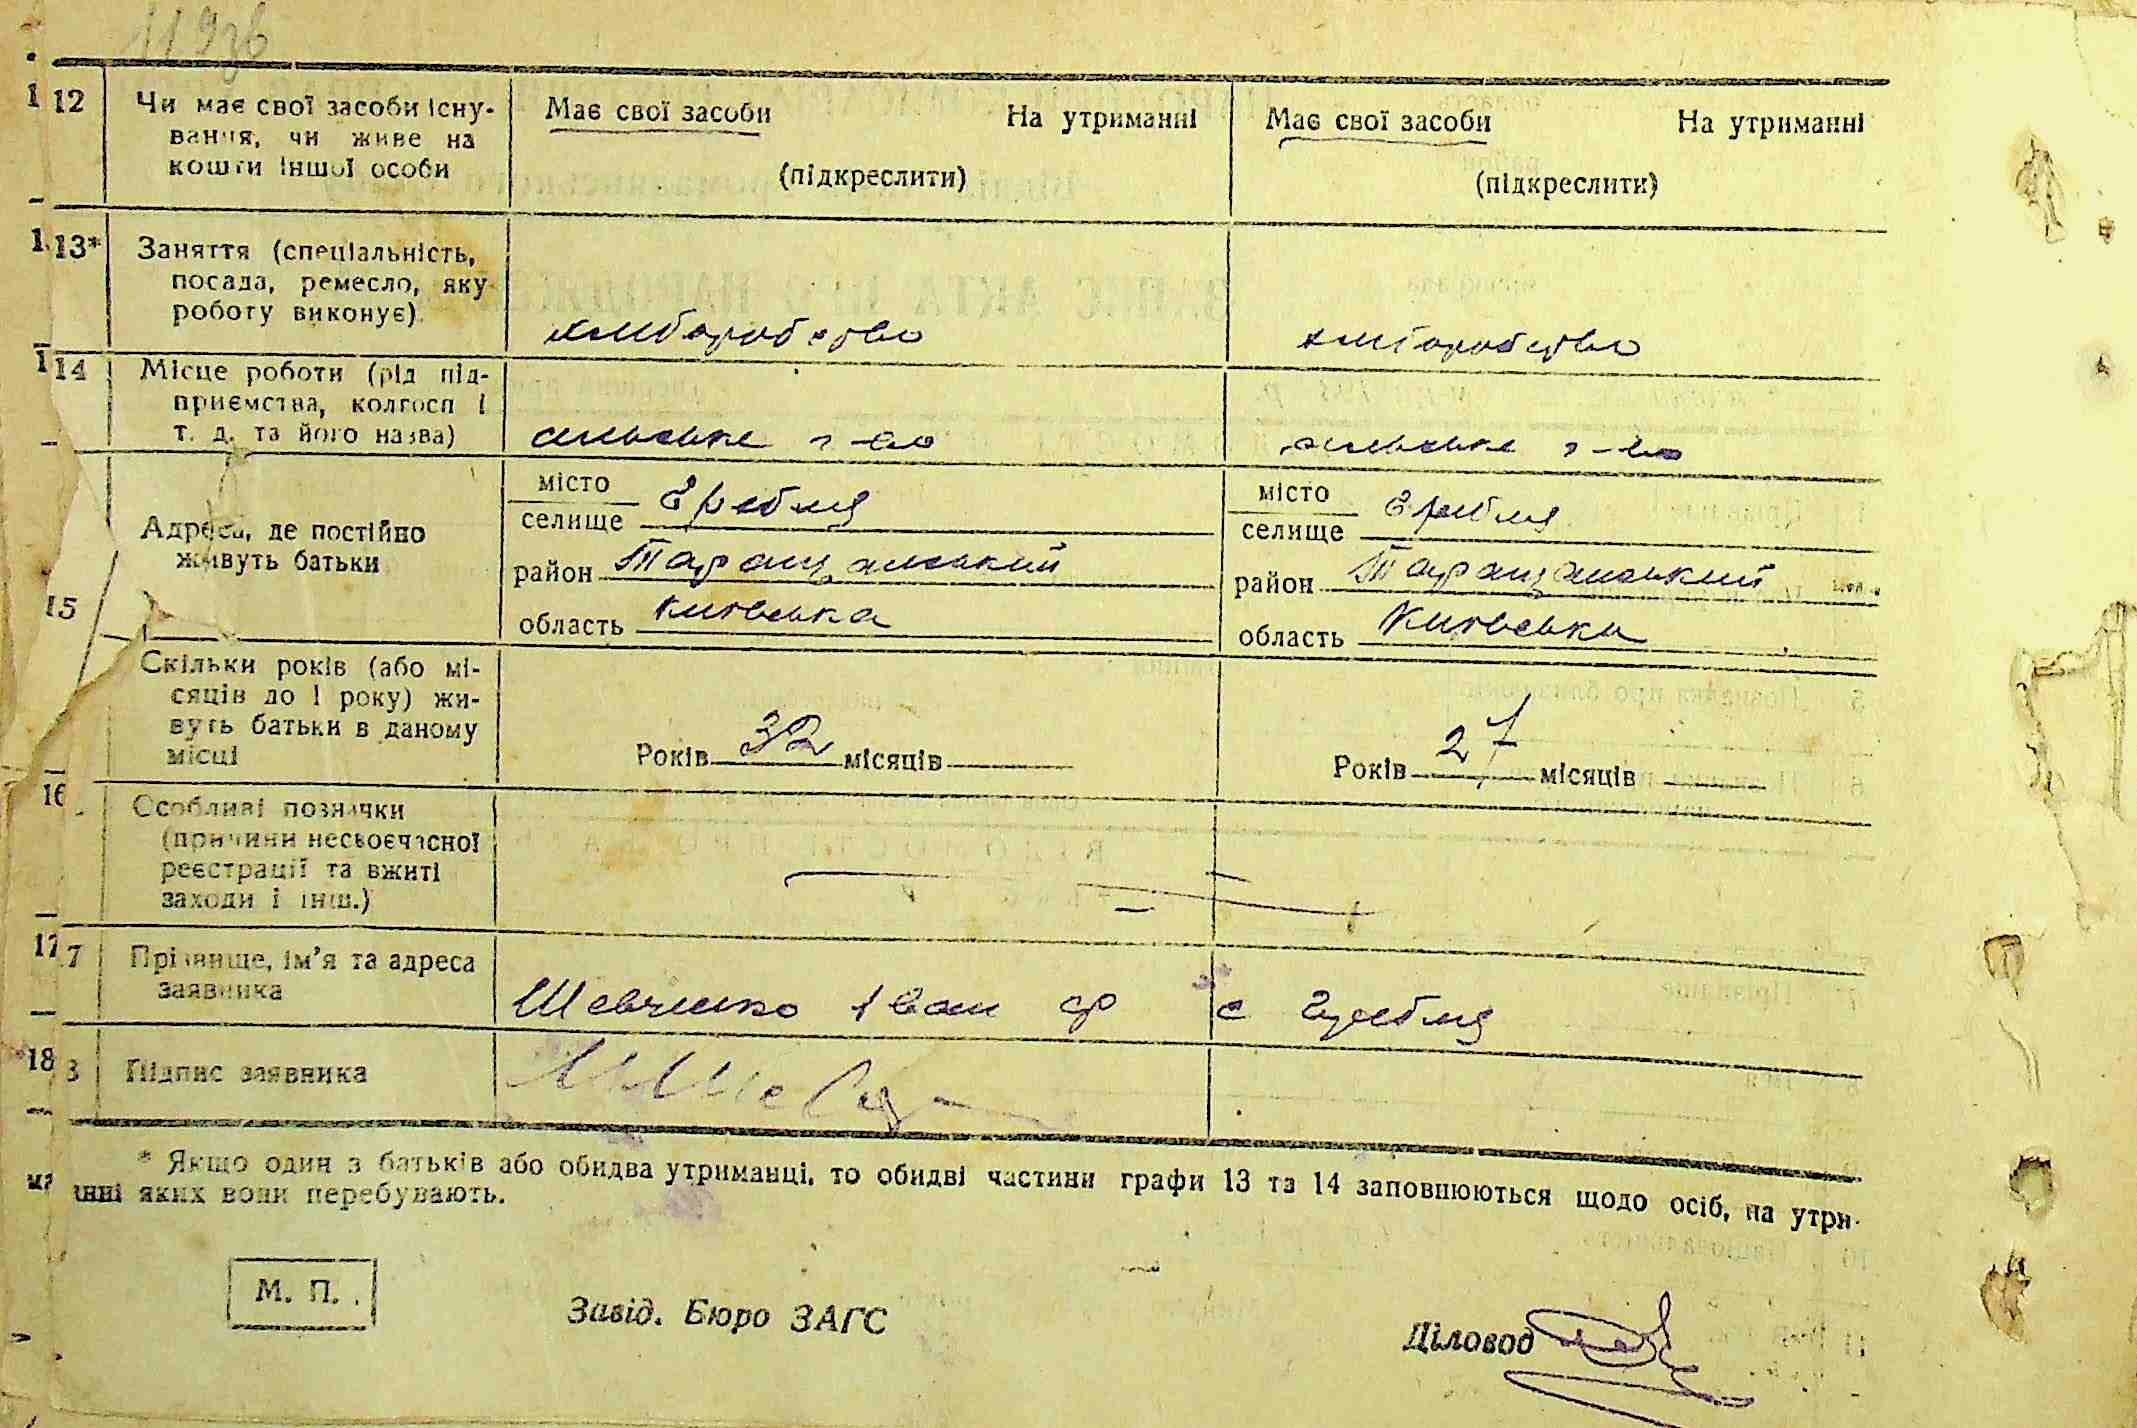 119зв
12 Чи має свої засоби існу-
вання, чи живе на
кошти іншої особи
Має свої засоби На утриманні
(підкреслити)
Має свої засоби На утриманні
(підкреслити)
13* Заняття (спеціальність,
посада, ремесло, яку
роботу виконує)
хліборобство
хліборобство
14 Місце роботи (рід під-
приємства, колгосп і
т. д. та його назва)
сельське г-во
сельське г-во
15 Адреса, де постійно
живуть батьки
місто
селище Гребля
район Таращанський
область Київська
місто
селище Гребля
район Таращанський
область Київська
Скільки років (або мі-
сяців до 1 року) жи-
вуть батьки в даному
місці
Років 32 місяців
Років 27 місяців
16 Особливі позначки
(причини несвоєчасної
реєстрації та вжиті
заходи і інш.)
17 Прізвище, ім'я та адреса
заявника
Шевченко Іван Ф с Гребля
18 Підпис заявника
* Якщо один з батьків або обидва утриманці, то обидві частини графи 13 та 14 заповнюються щодо осіб, на утри-
манні яких вони перебувають.
М. П.
Завід. Бюро ЗАГС
Діловод